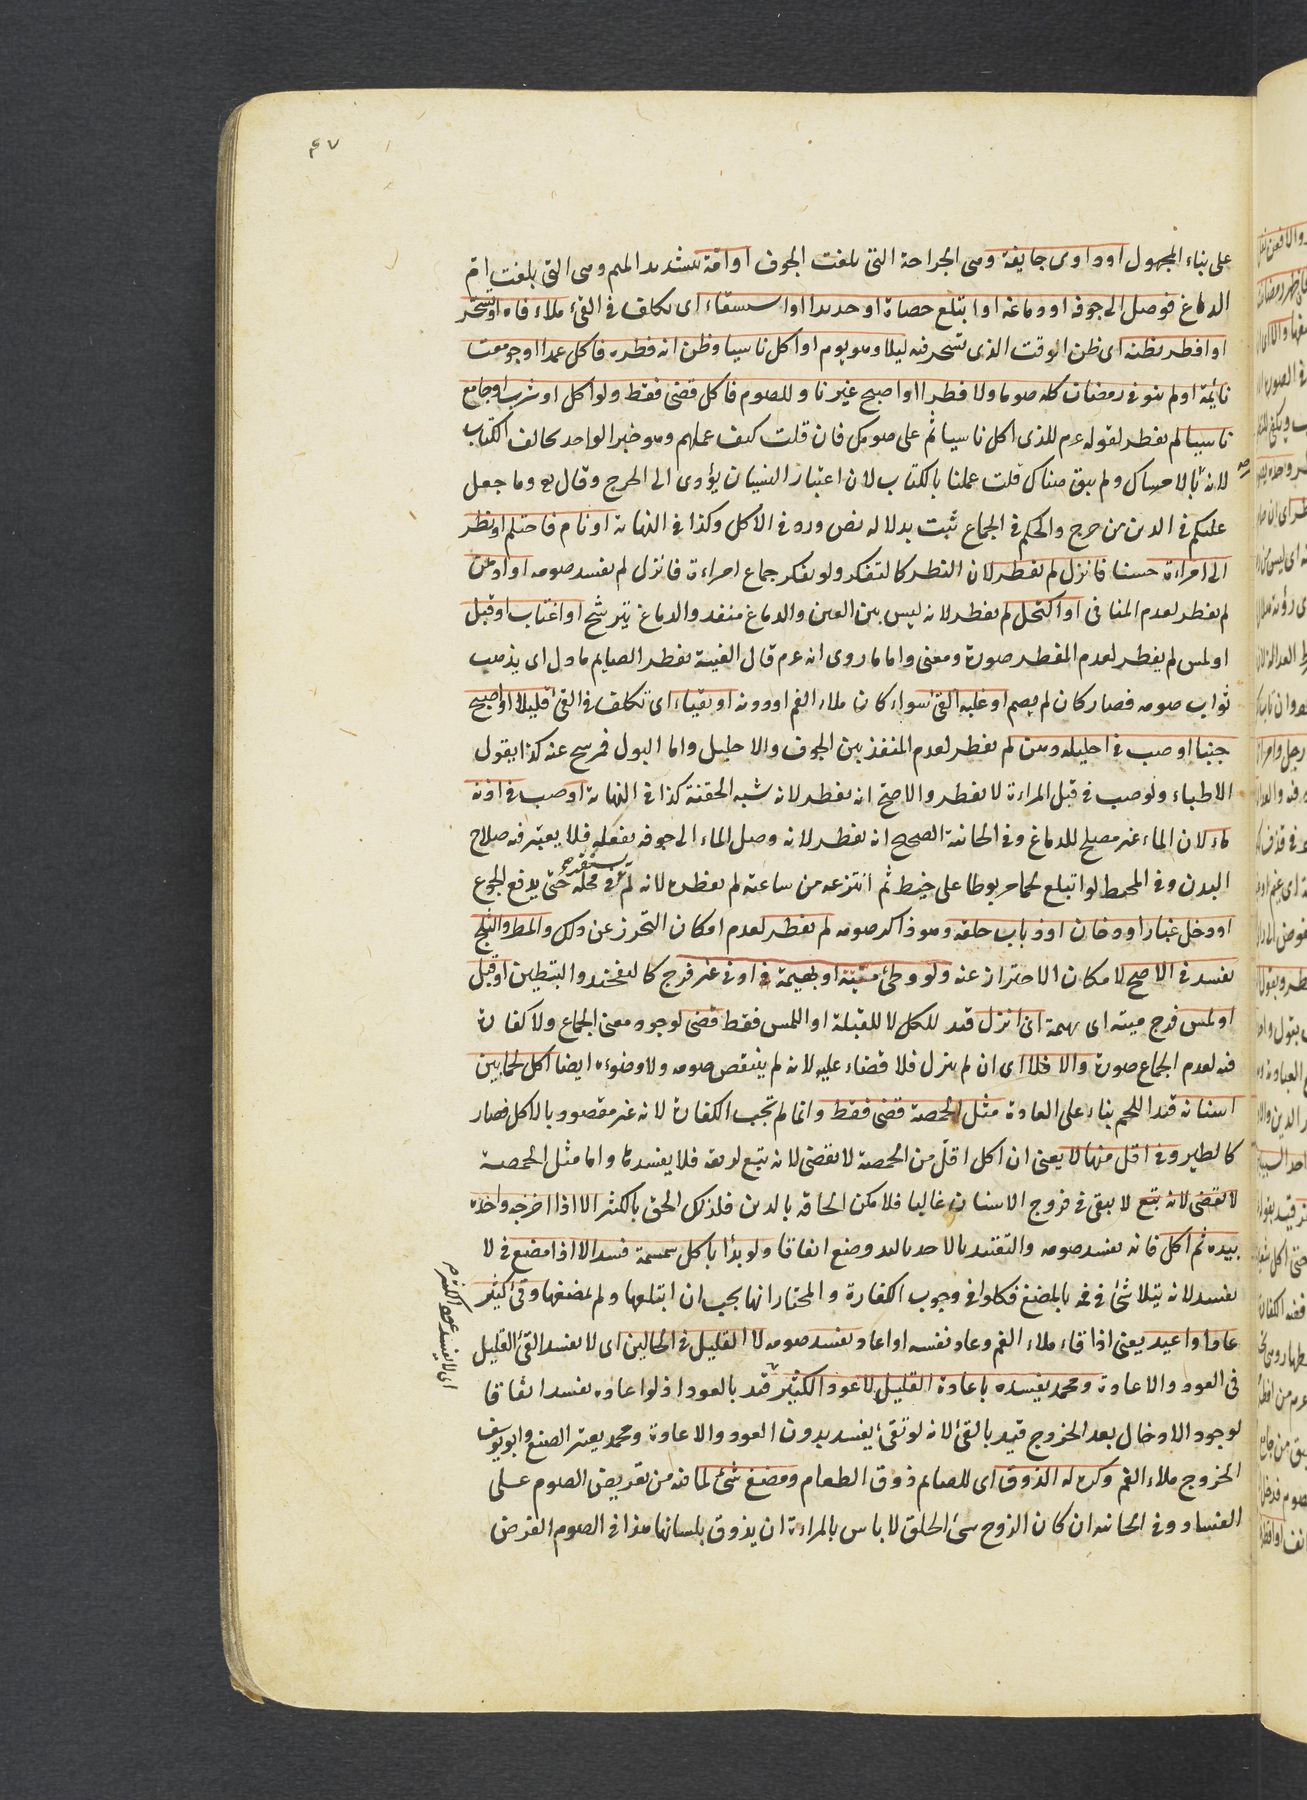 ٤٧
على بناء المجهول او داوى جايفة وهى الجراحة التى بلغت الجوف او امّة بتشديد الميم وهى التى بلغت امّ
الدماغ فوصل الى جوفه او دماغه او ابتلع حصاة او حديدا او استقاء اى تكلف فى القئ ملاء فاه او تسحر
او افطر بظنه اى ظن الوقت الذى تسحر فيه ليلا وهو يوم او اكل ناسيا وظن انه فطره فاكل عمدا او جومعت
نائمة او لم ينو فى رمضان كله صوما ولا فطرا او اصبح غير ناو للصوم فاكل قضى فقط ولو اكل او شرب او جامع
ناسيا لم يفطر لقوله عم للذى اكل ناسيا تم على صومك فان قلت كيف عملهم وهو خبر الواحد يخالف الكتاب
لانه بالامساك ولم يبق هناك قلت عملنا بالكتاب لان اعتبار النسيان يؤدى الى الحرج وقال تع وما جعل
عليكم فى الدين من حرج والحكم فى الجماع ثبت بدلالة نص ورد فى الاكل وكذا فى النهاية او نام فاحتلم او نظر
الى امراءة حسنا فانزل لم يفطر لان النظر كالتفكر ولو تفكر جماع امراءة فانزل لم يفسد صومه او ادهن
لم يفطر لعدم المنافى او اكتحل لم يفطر لانه ليس بين العين والدماغ منفذ والدماغ يترشح او اغتاب او قبل
او لمس لم يفطر لعدم المفطر صورة ومعنى واما ما روى انه عم قال الغيبة تفطر الصايم ماول اى يذهب
ثواب صومه فصار كان لم يصم او غلبه القئ سواء كان ملاء الفم او دونه او تقياء اى تكلف فى القئ قليلا او اصبح
جنبا او صب فى احليله دهن لم يفطر لعدم المنفذ بين الجوف والاحليل واما البول فمترشح عنه كذا يقول
الاطباء ولو صب فى قبل المراءة لا يفطر والاصح انه يفطر لانه شبه الحقنة كذا فى النهاية او صب فى اذنه
ماء لان الماء غير مصلح للدماغ وفى الخانية الصحيح انه يفطر لانه وصل الماء الى جوفه بفعله فلا يعتبر فيه صلاح
البدن وفى المحيط لو ابتلع لحما مربوطا على خيط ثم انتزعه من ساعته لم يفطره لانه لم يستقر فى محله حتى يدفع الجوع
او دخل غبار او دخان او ذباب حلقه وهو ذاكر صومه لم يفطر لعدم امكان التحرز عن ذلك والمطر والثلج
يفسد فى الاصح لامكان الاحتراز عنه ولو وطئ ميتة او بهيمة او فى غير فرج كالفخذ والتبطين او قبل
او لمس فرج ميته اى بهيمة ان انزل قيد للكل لا للقبلة او اللمس فقط قضى لوجود معنى الجماع ولا كفارة
فيه لعدم الجماع صورة والا فلا اى ان لم ينزل فلا قضاء عليه لانه لم ينتقص صومه ولا وضوءه ايضا اكل لحما بين
اسنانه قيد اللحم بناء على العادة مثل الحمصة قضى فقط وانما لم تجب الكفارة لانه غير مقصود بالاكل فصار
كالطير وفى اقل منها لا يعنى ان اكل اقلّ من الحمصة لا يقضى لانه تبع لريقه فلا يفسدها واما مثل الحمصة
لا يقضى لانه تبع لا يبقى فى فروج الاسنان غالبا فلا يمكن الحاقه بالدين فلذلك الحق بالكثير الا اذا اخرجه واخذه
بيده ثم اكل فانه يفسد صومه والتقييد بالاخذ باليد وضع اتفاقا ولو بدأ باكل سمسمة فسد الا اذا مضغ فى لا
يفسد لانه يتلاشى فى فمه بالمضغ فكلوا فى وجوب الكفارة والمختار انها يجب ان ابتلعها ولم يمضغها وقئ كثير
عاد او اعيد يعنى اذا قاء ملاء الفم وعاد نفسه او اعاد يفسد صومه لا القليل فى الحالين اى لا يفسد القئ القليل
فى العود والاعادة ومحمد يفسده باعادة القليل لا عود الكثير قيد بالعود اذ لو اعاده يفسد اتفاقا
لوجود الادخال بعد الخروج قيد بالقئ لانه لو تقئ يفسد بدون العود والاعادة ومحمد يعتبر الصنع وابو يوسف
الخروج ملاء الفم وكره له الذوق اى للصايم ذوق الطعام ومضغ شئ لما فيه من تعريض الصوم على
الفساد وفى الخانية ان كان الزوج سئ الخلق لا باس بالمراءة ان يذوق بلسانها هذا فى الصوم الفرض